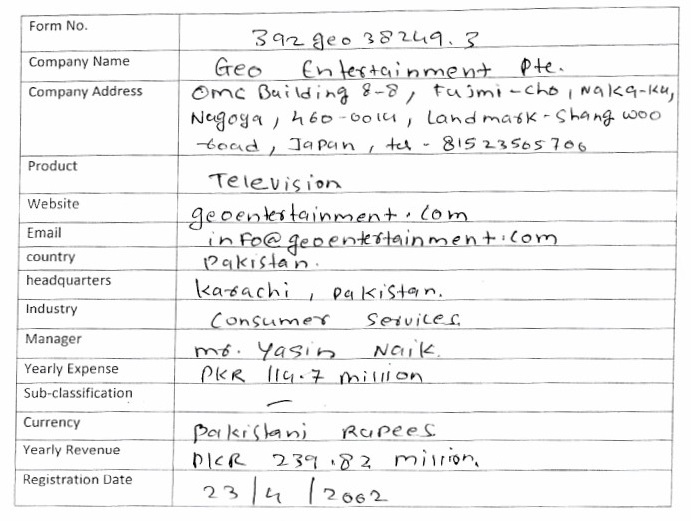 Form No. 392geo38249.3
Company Name Geo Entertainment Pte.
Company Address OMC Building 8-8, Fujmi-cho, Naka-ku,
Nagoya, 460-0014, Landmark-Shang woo
road, Japan, tel - 81523565706
Product Television
Website geoentertainment.com
Email info@geoentertainment.com
country Pakistan.
headquarters Karachi, Pakistan.
Industry Consumer Services.
Manager mr. Yasin Naik.
Yearly Expense PKR 114.7 million
Sub-classification —
Currency Pakistani Rupees.
Yearly Revenue PKR 239.82 million.
Registration Date 23/4/2002